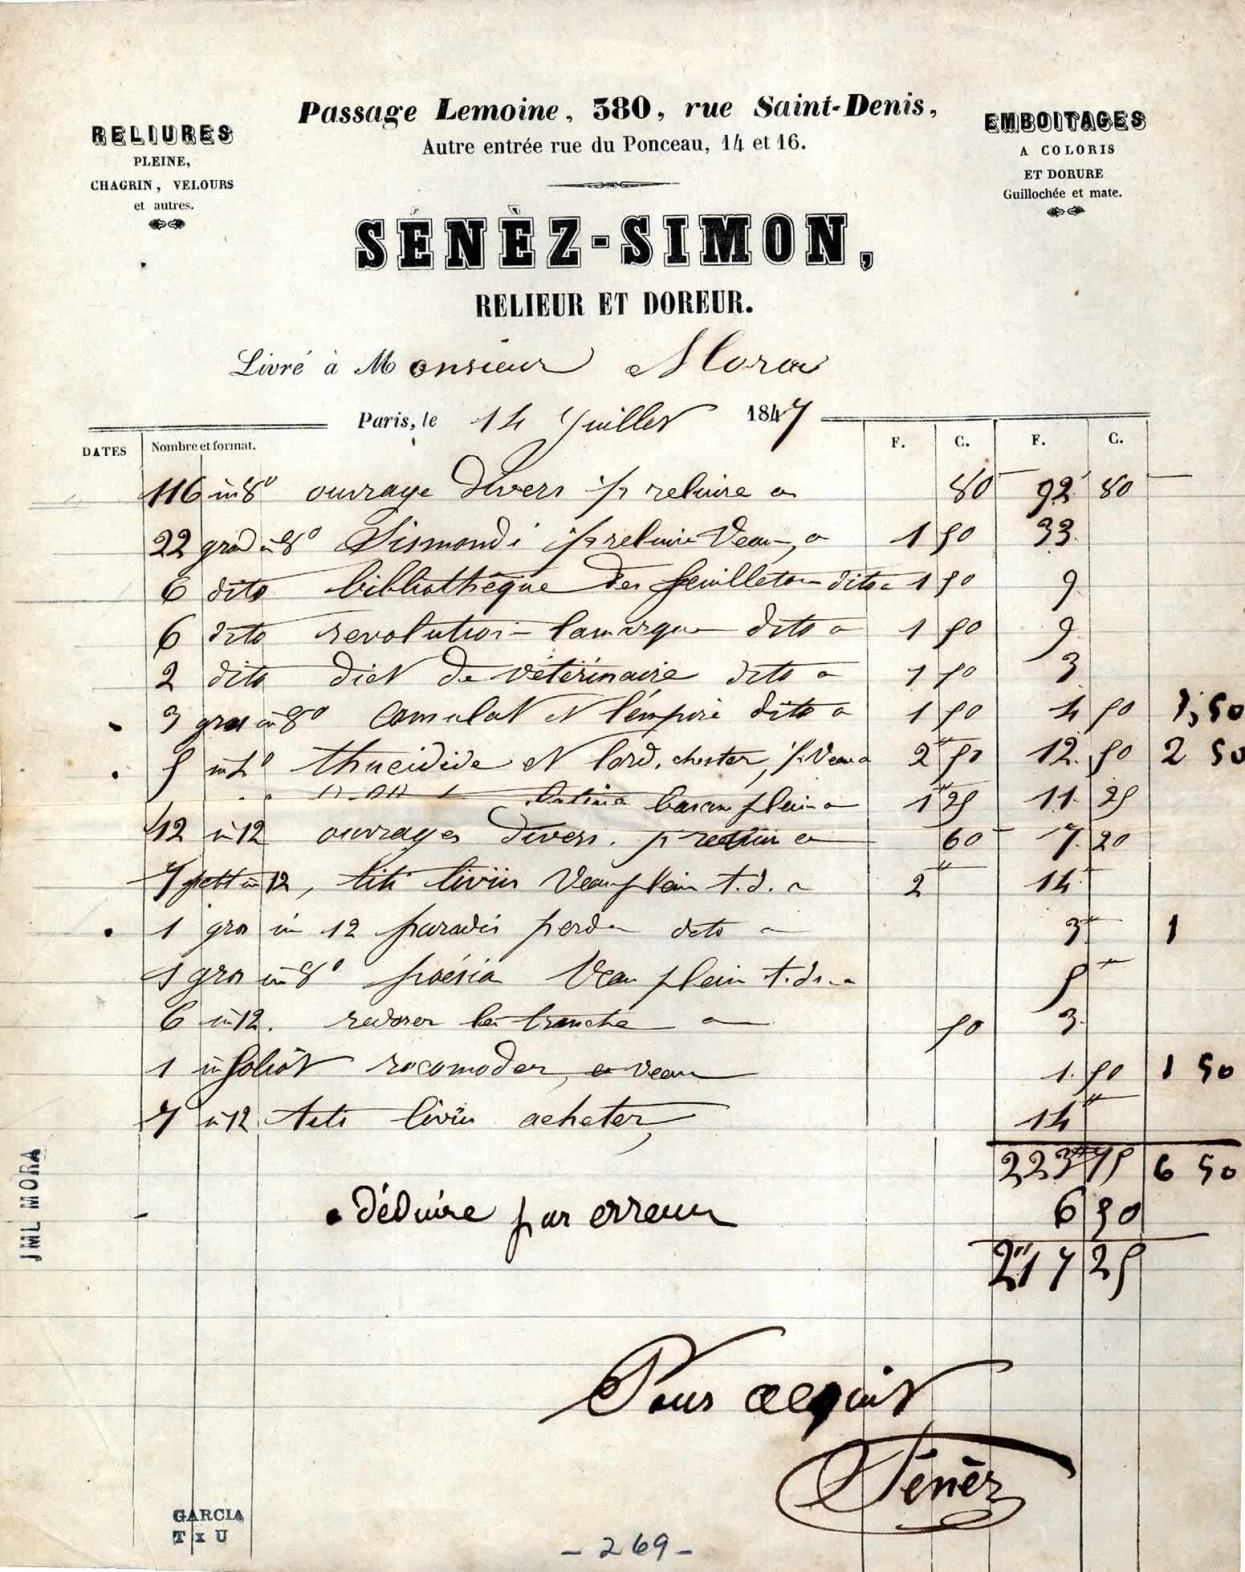 Passage Lemoine, 380, rue Saint-Denis,
Autre entrée rue du Ponceau, 14 et 16.
RELIURES
PLEINE,
CHAGRIN, VELOURS
et autres.
EMBOITAGES
A COLORIS
ET DORURE
Guillochée et mate.
SÉNÈZ-SIMON,
RELIEUR ET DOREUR.
Livré à Monsieur Mora
Paris, le 14 Juillet 1847
DATES Nombre et format. F. C. F. C.
116 in 8º ouvrage divers p reluire a 80 92 80
22 grd in 8º Sismondi p reluire Veau, a 1 50 33
6 dito bibliothèque des feuilleton dito a 1 50 9
6 dito revolution lamarque dito a 1 50 9
2 dito dict de vétérinaire dito a 1 50 3
3 gros in 8º Consulat et l'empire dito a 1 50 4 50 1,50
5 in 4º thucidide et lord, chester, p Veau a 2 50 12 50 2 50
latine basan plein a 1 25 11 25
12 in 12 ouvrages divers. p a 60 7 20
7 petit in 12, titi livius Veau plein t.d. a 2 14
1 gros in 12 paradis perdu dito a 3 1
1 gros in 8º poésia Veau plein t.d. a 5
6 in 12. redorer les tranche a 50 3
1 in foliot racomoder, veau 1 50 1 50
7 in 12 titi livius acheter, 14
223 75 6 50
déduire par erreur 6 50
217 25
Pour acquit
Sénèz
JML MORA
GARCIA
T x U
- 269 -